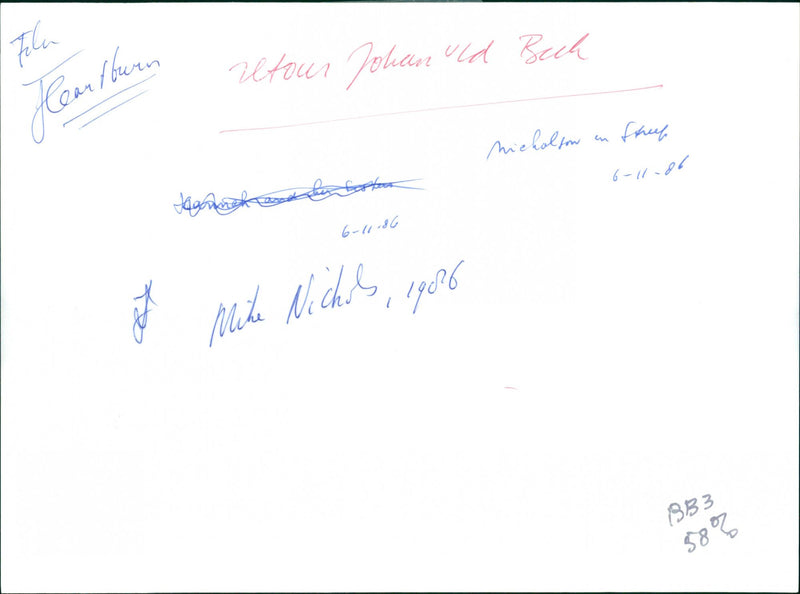 Film
Heartburn
retour Johan v/d Beek
Nicholson en Streep
6-11-86
Hannah and her sisters
6-11-86
Mike Nichols, 1986
BB3
58%